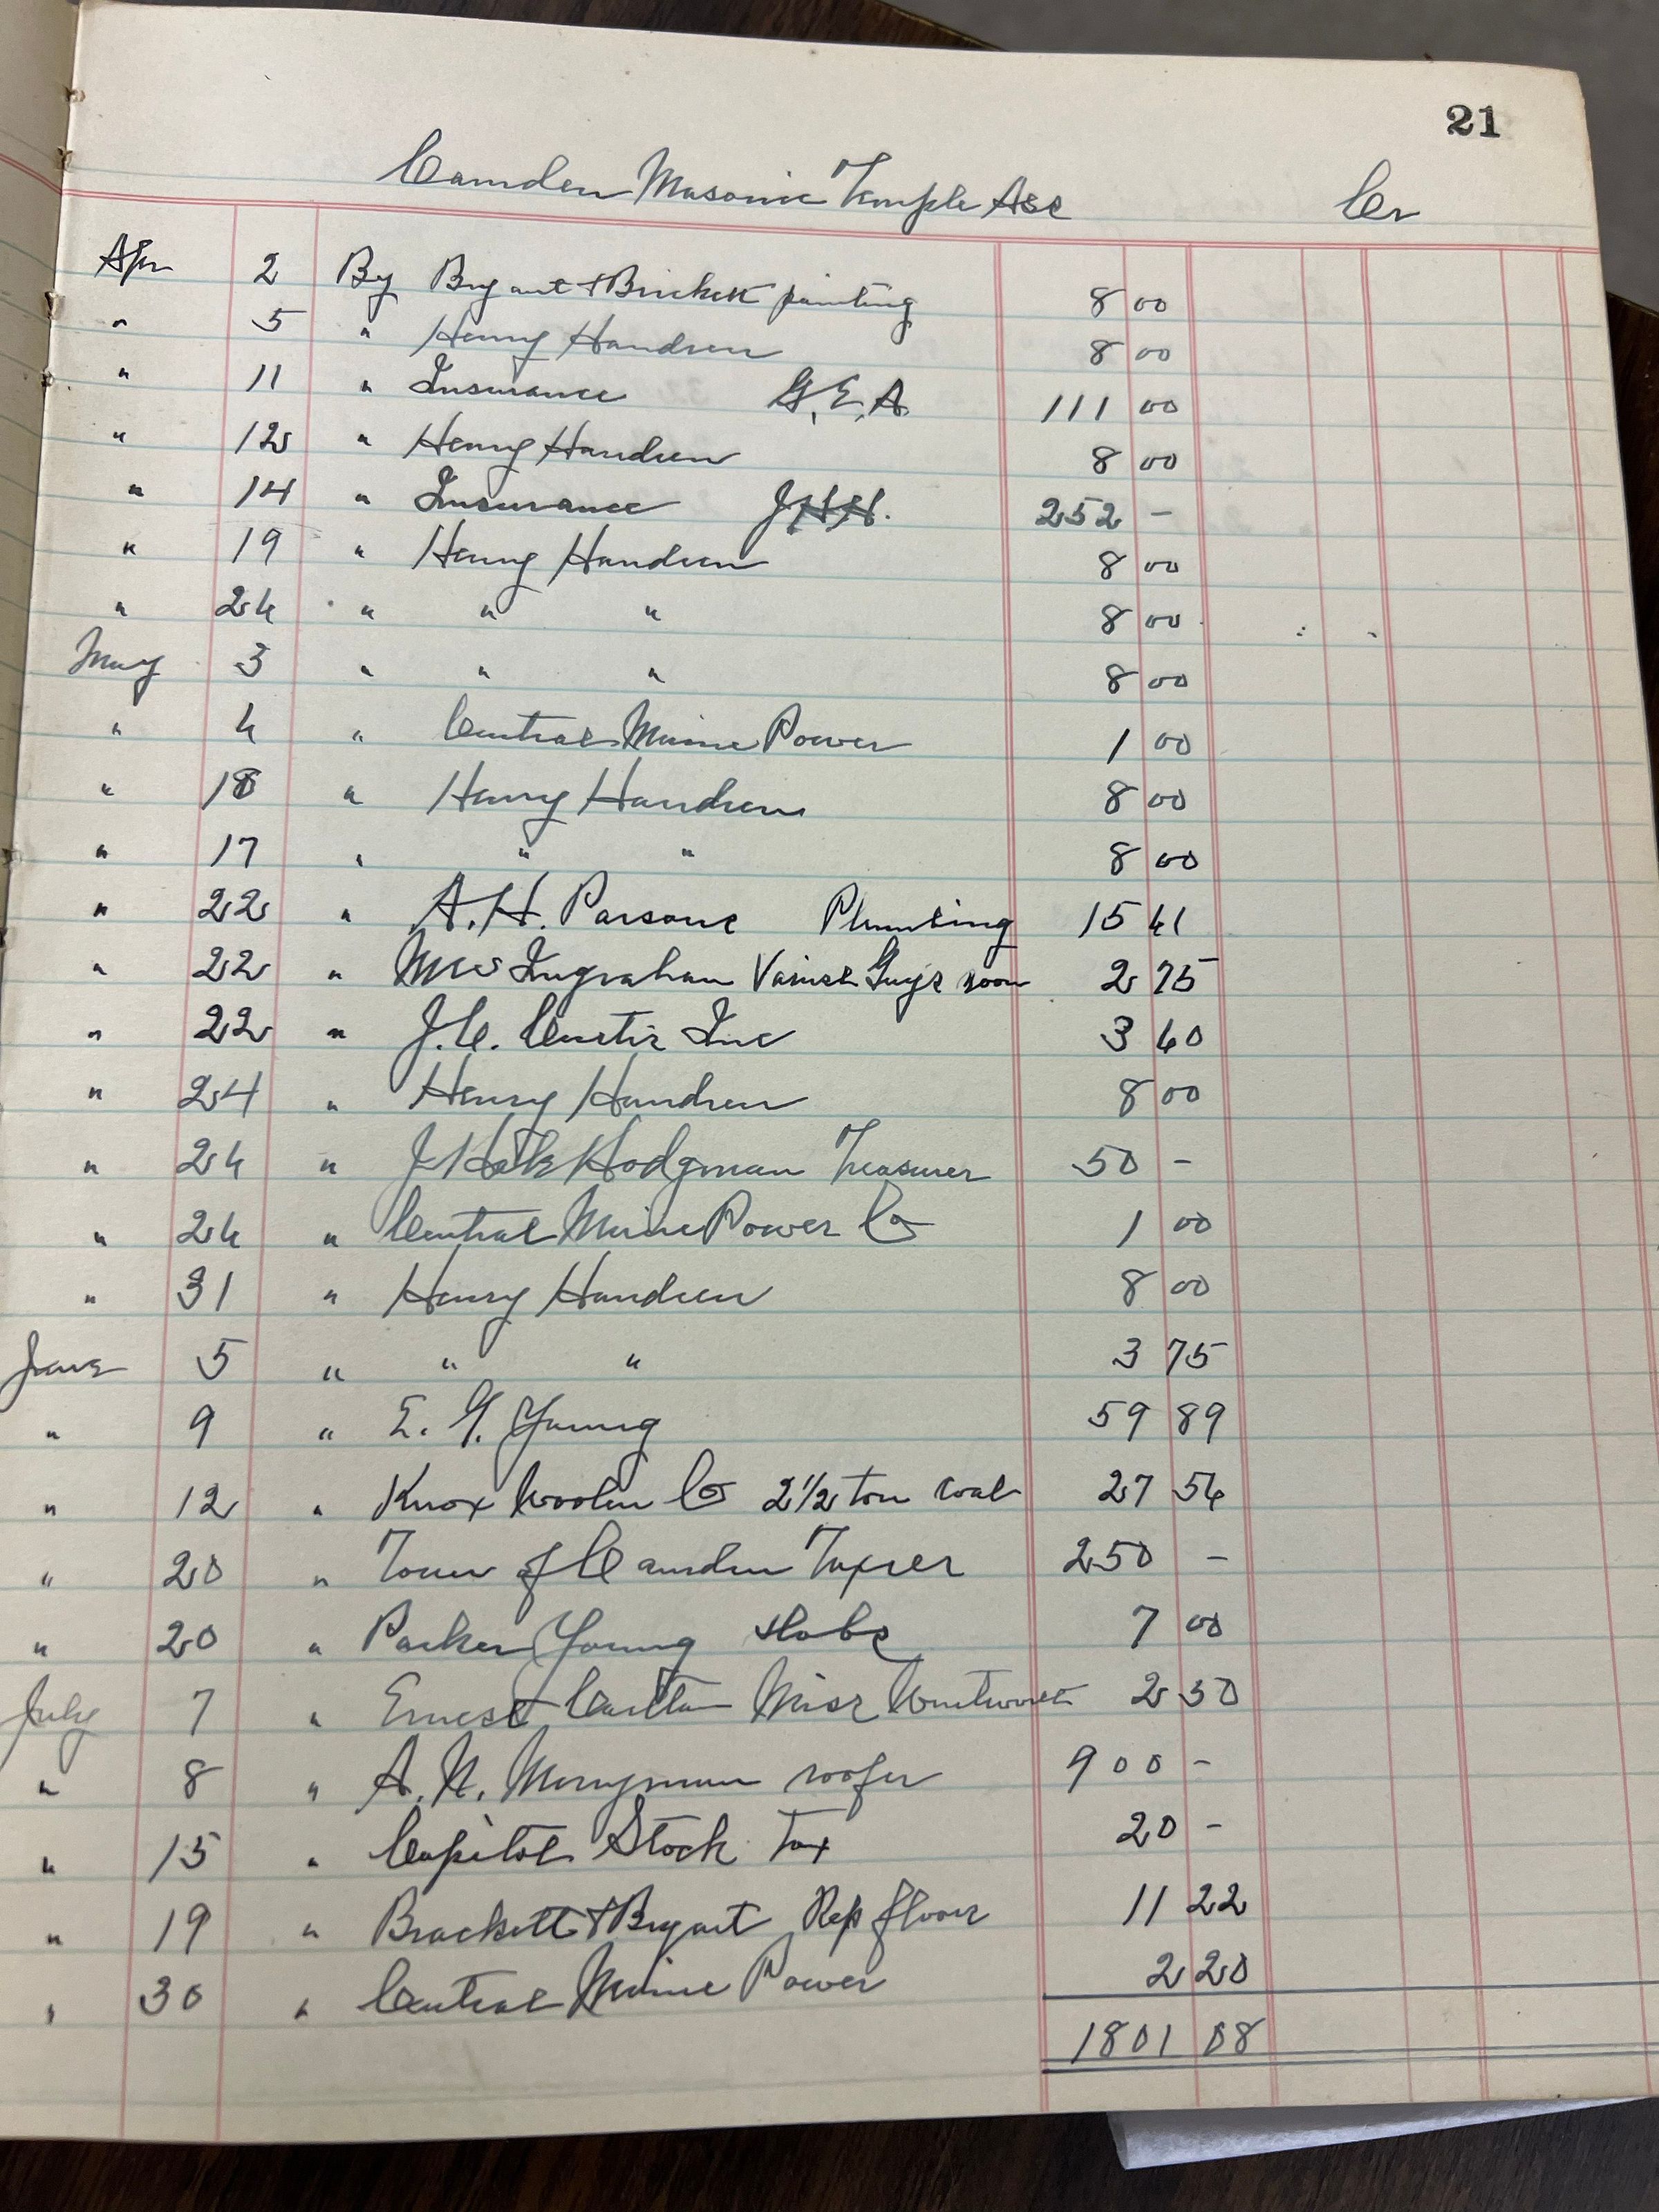 21
Camden Masonic Temple Asc Cr
Apr 2 By Bryant & Brickett painting 8 00
" 5 " Henry Handren 8 00
" 11 " Insurance G.E.A. 111 00
" 12 " Henry Handren 8 00
" 14 " Insurance J.H.H. 252 -
" 19 " Henry Handren 8 00
" 24 " " " 8 00
May 3 " " " 8 00
" 4 " Central Maine Power 1 00
" 18 " Henry Handren 8 00
" 17 " " " 8 00
" 22 " A.H. Parsons Plumbing 15 41
" 22 " Ingraham room 2 75
" 22 " J.C. Curtis Inc 3 40
" 24 " Henry Handren 8 00
" 24 " J Hale Hodgman Treasurer 50 -
" 24 " Central Maine Power Co 1 00
" 31 " Henry Handren 8 00
June 5 " " " 3 75
" 9 " E. G. Young 59 89
" 12 " Knox Woolen Co 2 1/2 ton coal 27 54
" 20 " Town of Camden Taxes 250 -
" 20 " Parker Young slabs 7 00
July 7 " Ernest Carlton Miss Wentworth 2 50
" 8 " A. N. Merryman roofer 900 -
" 15 " Capitol Stock Tax 20 -
" 19 " Brackett & Bryant Rep floor 11 22
" 30 " Central Maine Power 2 20
1801 08